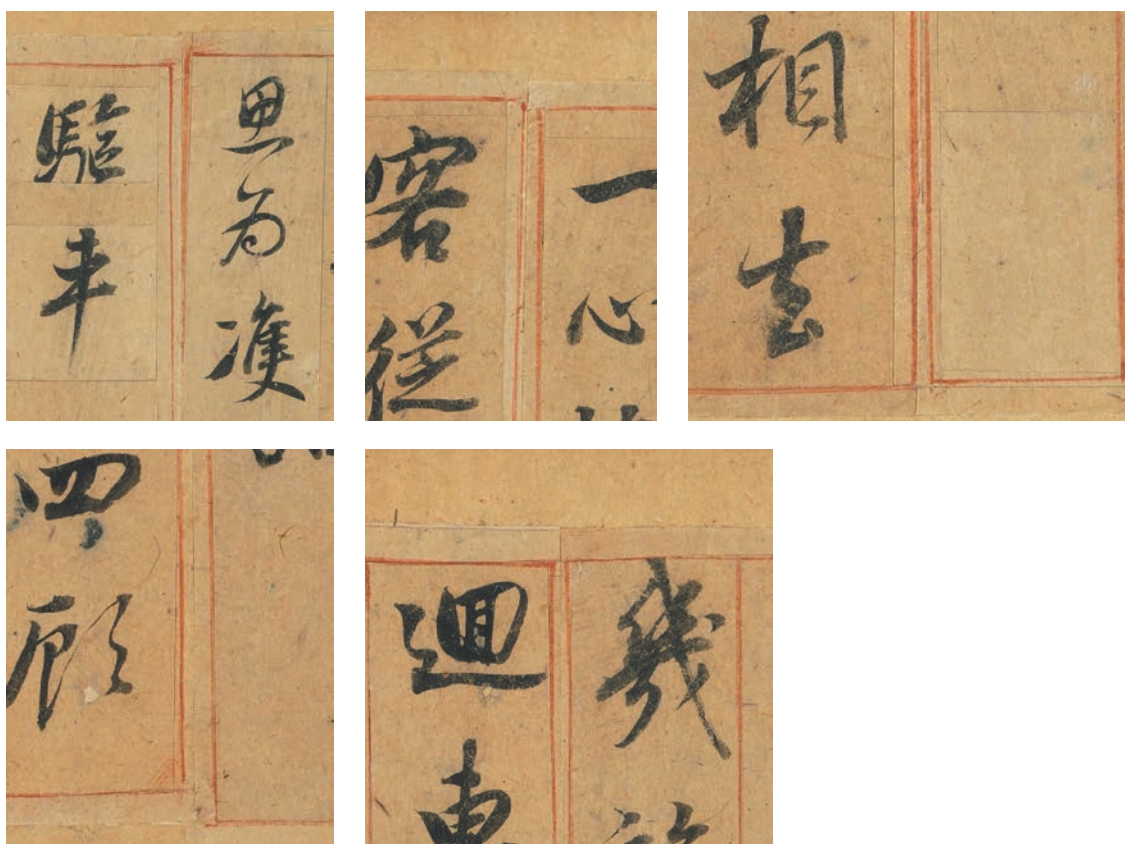 思為雙
驅車
一心
客從
相去
四顧
幾
迴車